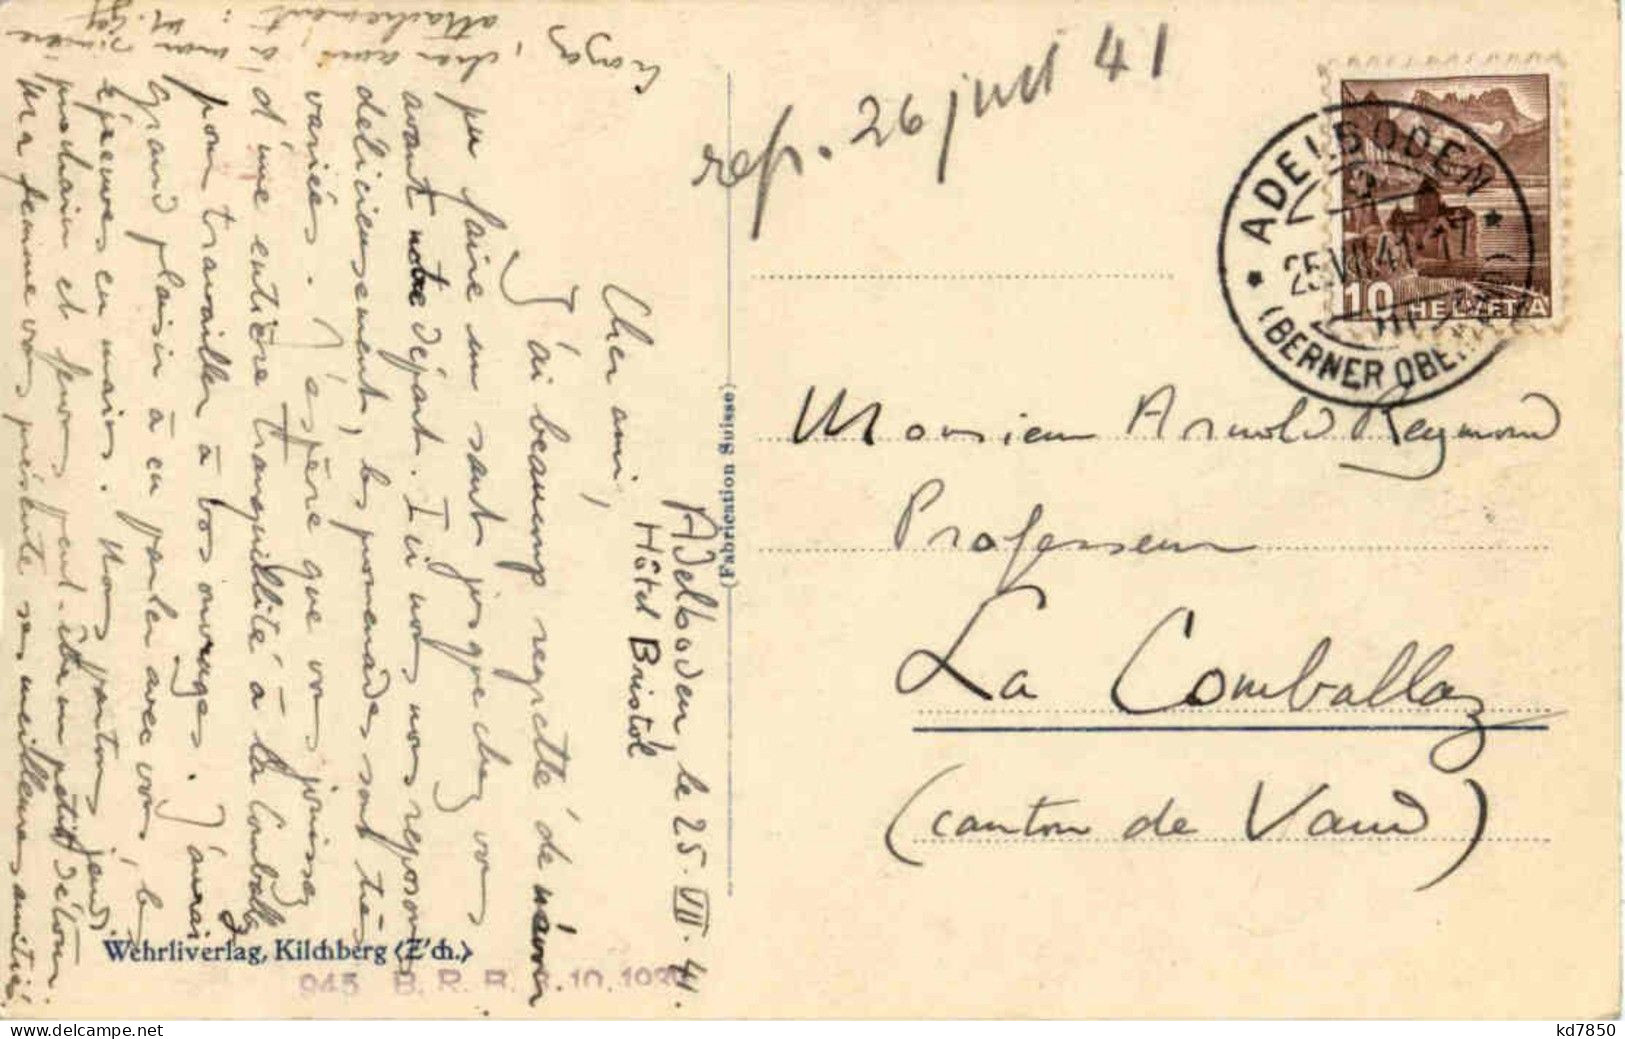 Adelboden, le 25. VII. 41.
Hôtel Bristol
Cher ami,
J'ai beaucoup regretté de n'avoir
pu faire un saut jusque chez vous
avant notre départ. Ici nous nous reposons
délicieusement, les promenades sont très
variées. J'espère que vous jouissez
d'une entière tranquillité à la Comballaz
pour travailler à vos ouvrages. J'aurai
grand plaisir à en parler avec vous, les
épreuves en mains. Nous partons jeudi
prochain et ferons peut-être un petit détour.
Ma femme vous présente ses meilleures amitiés.
Croyez, cher ami, à mon sincère
attachement :
Wehrliverlag, Kilchberg (Z'ch.)
945 B. R. R. 10.19
(Fabrication Suisse)
rép. 26 juil 41
ADELBODEN
25.VII.41-17
(BERNER OBE
10 HELVETIA
Monsieur Arnold Reymond
Professeur
La Comballaz
(canton de Vaud)
kd7850